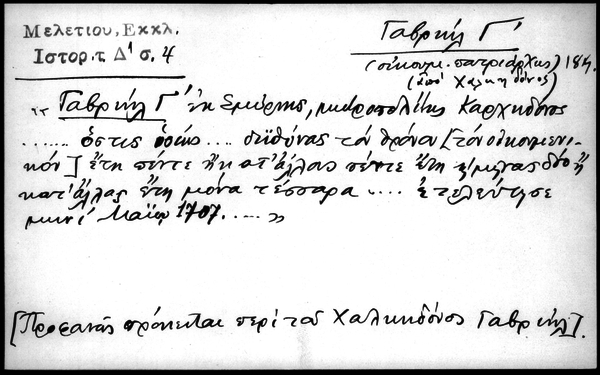 Μελετίου, Εκκλ.
Ιστορ. τ. Δ' σ. 4
Γαβριήλ Γ'
(οἰκουμ. πατριάρχης) 184.
(ἀπό Χαλκηδόνος)
" Γαβριήλ Γ' ἐκ Σμύρνης, μητροπολίτης Καρχηδόνος
...... ὅστις .... διϊθύνας τόν θρόνον [τόν οἰκουμενι-
κόν] ἔτη πέντε ἤ κατ' ἄλλους πέντε ἔτη μῆνας δύο ἤ
κατ' ἄλλους ἔτη μόνα τέσσαρα .... ἐτελεύτησε
μηνί Μαΐῳ 1707. .... "
[Προφανῶς πρόκειται περί τοῦ Χαλκηδόνος Γαβριήλ].